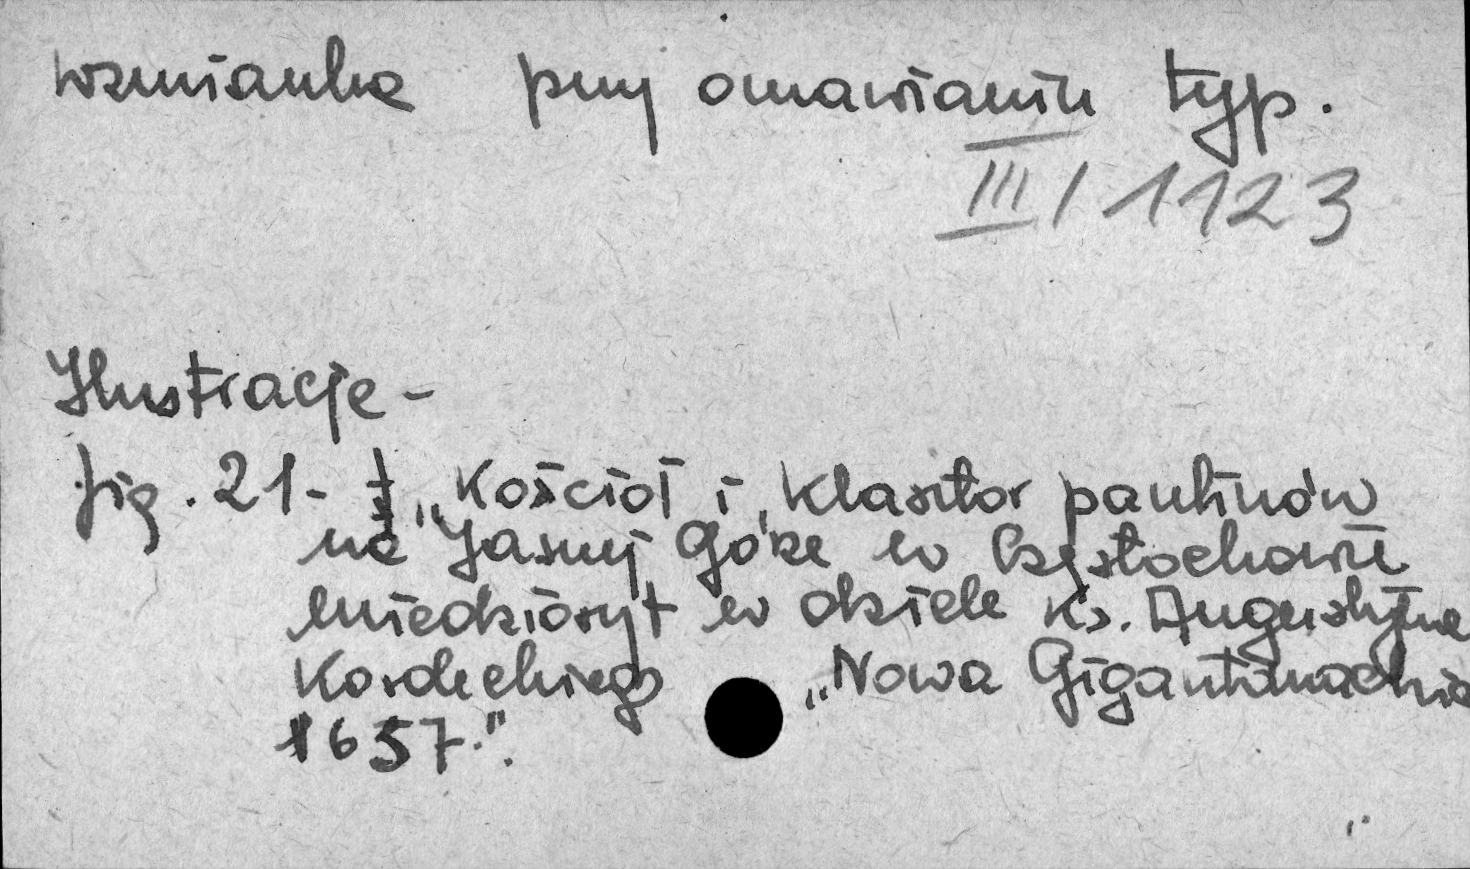 wzmianka przy omawianiu typ.
III/1123
Ilustracje -
fig. 21 - „Kościół i klasztor paulinów
na Jasnej Górze w Częstochowie
miedzioryt w dziele ks. Augustyna
Kordeckiego „Nowa Gigantomachia
1657.".